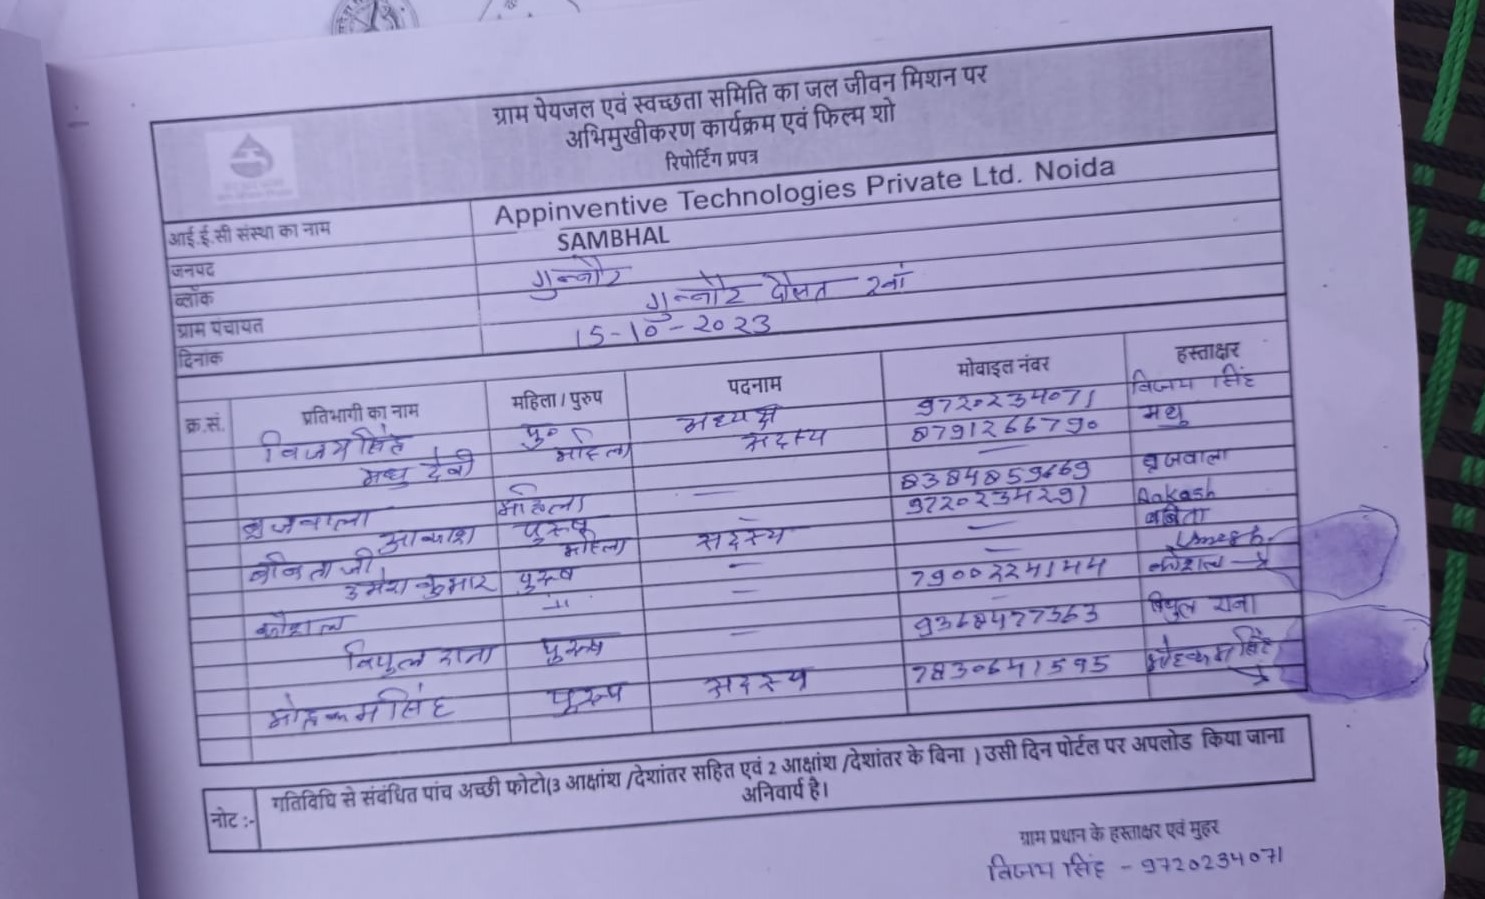 ग्राम पेयजल एवं स्वच्छता समिति का जल जीवन मिशन पर
अभिमुखीकरण कार्यक्रम एवं फिल्म शो
रिपोर्टिंग प्रपत्र
आई.ई.सी संस्था का नाम Appinventive Technologies Private Ltd. Noida
जनपद SAMBHAL
ब्लॉक गुन्नौर
ग्राम पंचायत गुन्नौर दौलत
दिनांक 15-10-2023
क्र.सं. प्रतिभागी का नाम महिला / पुरुष पदनाम मोबाइल नंबर हस्ताक्षर
विजय सिंह पु० अध्यक्ष 9720234071 विजय सिंह
मधु देवी महिला सदस्य 8791266790 मधु
बृजवाला महिला — 8384859669 बृजवाला
आकाश पुरुष — 9720234291 Aakash
बबिता जी महिला सदस्य — बबिता
उमेश कुमार पुरुष — — Umesh
कौशल — 7900224144 कौशल
विपुल राना पुरुष — 9368477363 विपुल राना
मोहकम सिंह पुरुष सदस्य 7830641595 मोहकम सिंह
नोट :- गतिविधि से संबंधित पांच अच्छी फोटो(3 आक्षांश /देशांतर सहित एवं 2 आक्षांश /देशांतर के बिना ) उसी दिन पोर्टल पर अपलोड किया जाना
अनिवार्य है।
ग्राम प्रधान के हस्ताक्षर एवं मुहर
विजय सिंह - 9720234071